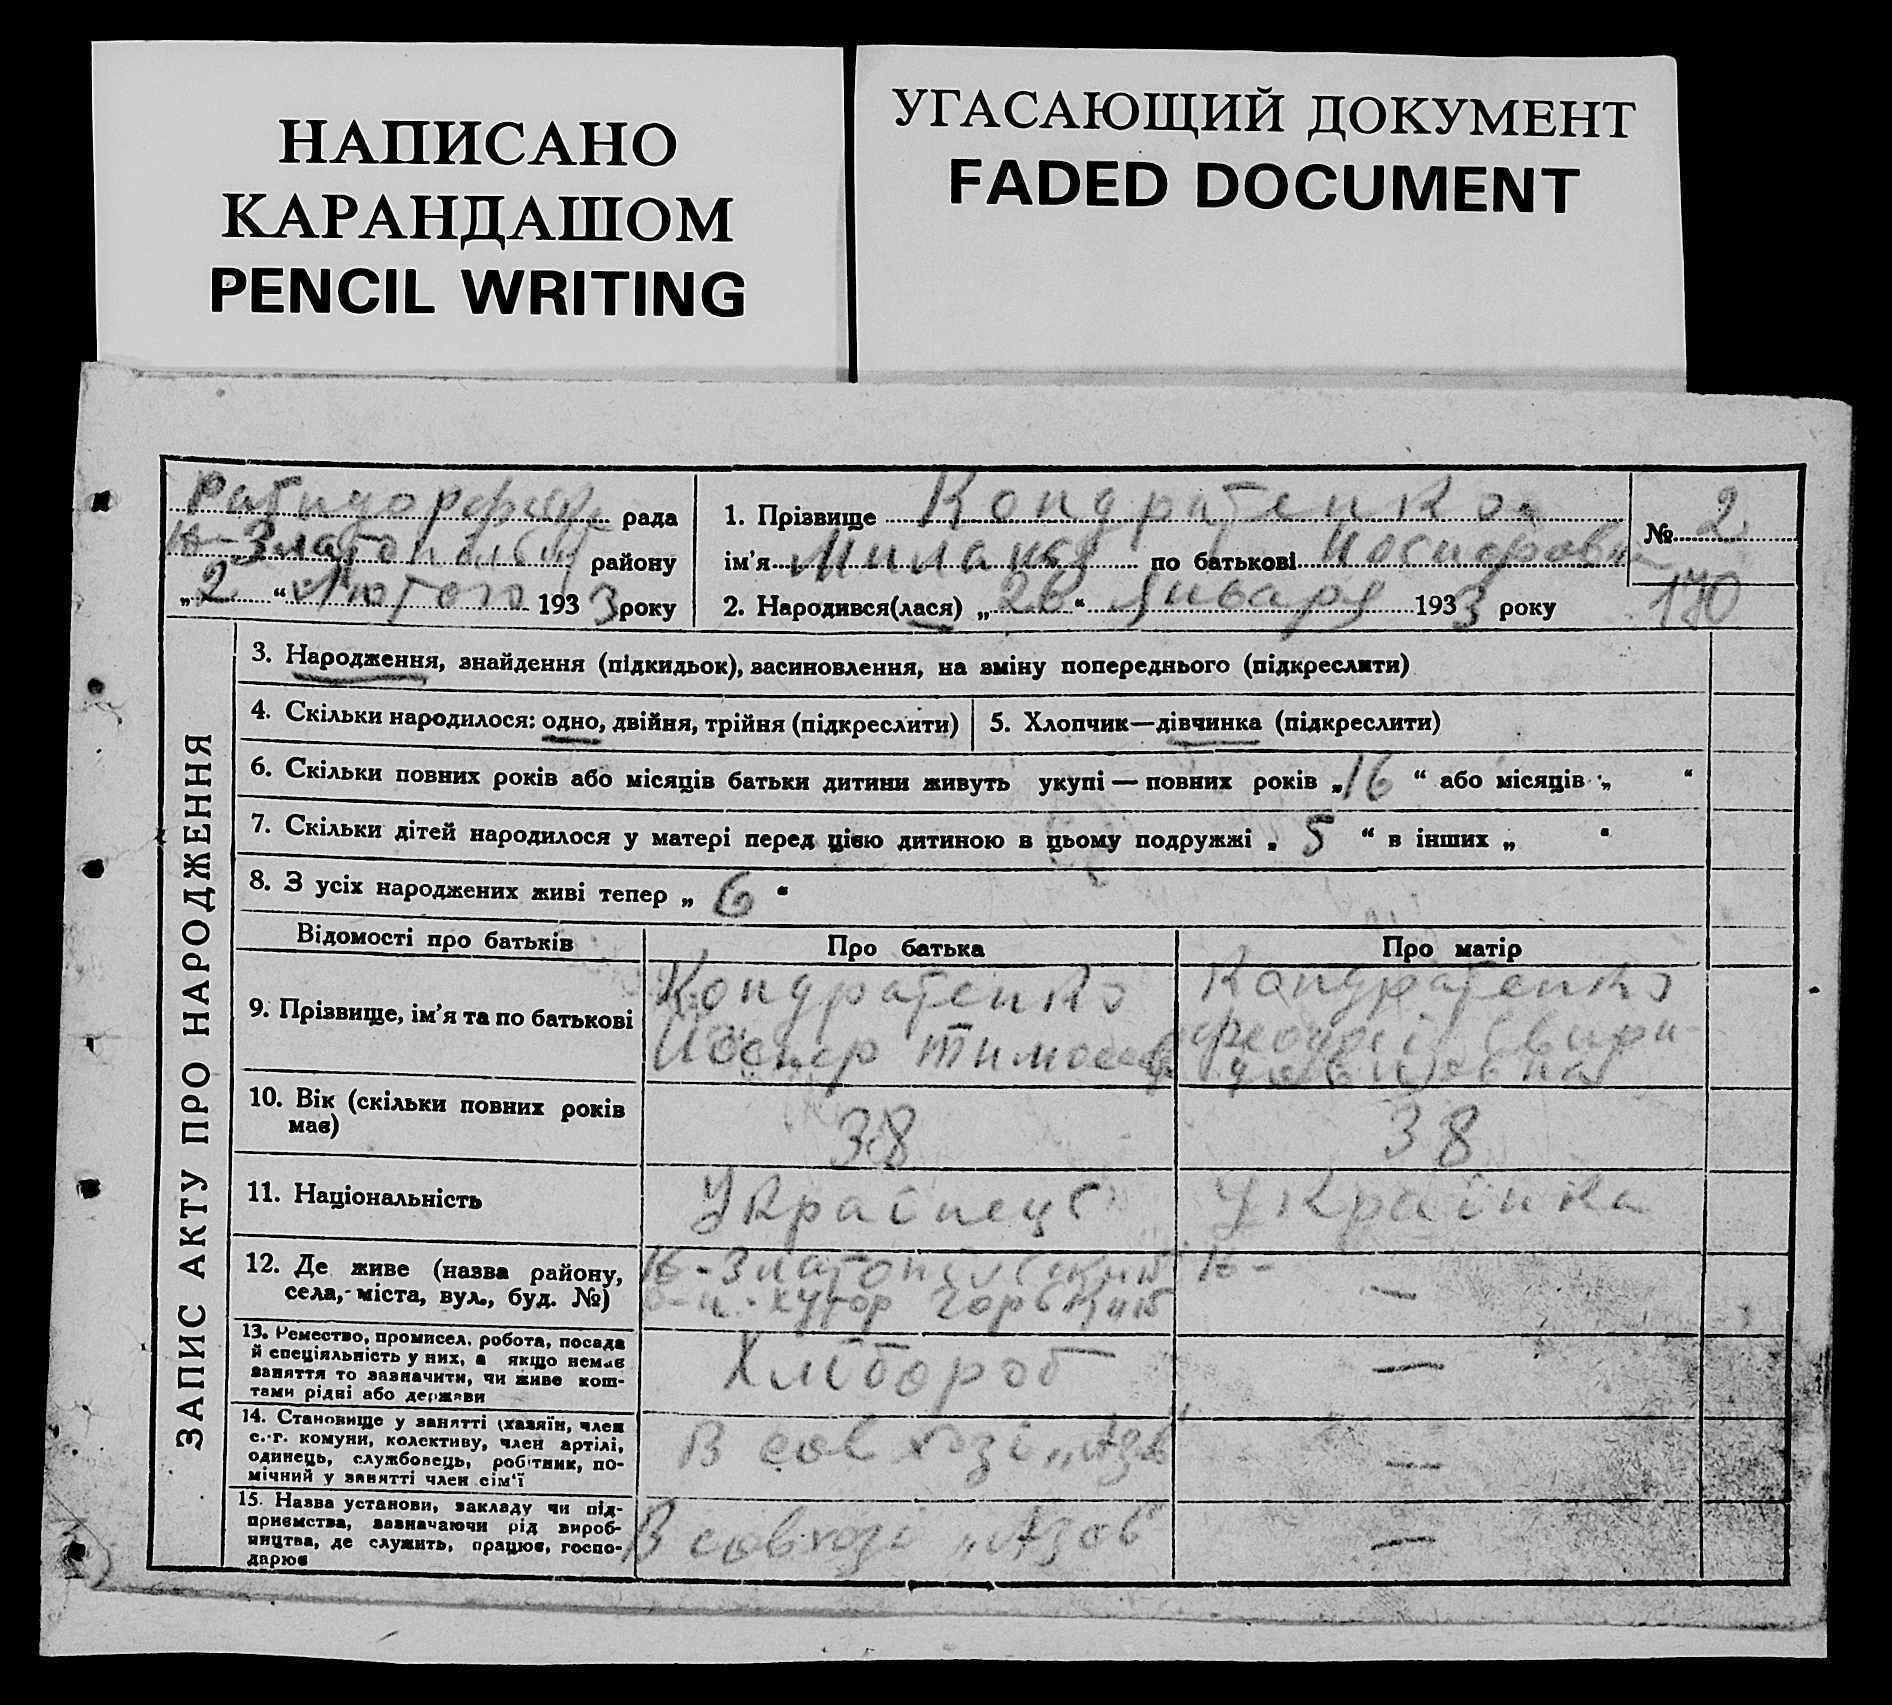 НАПИСАНО
КАРАНДАШОМ
PENCIL WRITING
УГАСАЮЩИЙ ДОКУМЕНТ
FADED DOCUMENT
рада
районУ
„2“ Лютого 1933 року
1. Прізвище Кондратенко
ім'я по батькові
2. Народився(лася) „26“ Января 1933 року
№ 2
170
ЗАПИС АКТУ ПРО НАРОДЖЕННЯ
3. Народження, знайдення (підкидьок), засиновлення, на зміну попереднього (підкреслити)
4. Скільки народилося: одно, двійня, трійня (підкреслити)
5. Хлопчик—дівчинка (підкреслити)
6. Скільки повних років або місяців батьки дитини живуть укупі — повних років „16“ або місяців „ “
7. Скільки дітей народилося у матері перед цією дитиною в цьому подружжі „ 5 “ в інших „ “
8. З усіх народжених живі тепер „ 6 “
Відомості про батьків
Про батька
Про матір
9. Прізвище, ім'я та по батькові
Кондратенко
Кондратенко
10. Вік (скільки повних років
має)
38
38
11. Національність
Українець
Українка
12. Де живе (назва району,
села, міста, вул., буд. №)
хутор Горький
—
13. Ремество, промисел, робота, посада
й спеціяльність у них, а якщо немає
заняття то зазначити, чи живе кош-
тами рідні або держави
Хлібороб
—
14. Становище у занятті (хазяїн, член
с.-г. комуни, колективу, член артілі,
одинець, службовець, робітник, по-
мічний у занятті член сім'ї
В совхозі „Азов
—
15. Назва установи, закладу чи під-
приємства, зазначаючи рід вироб-
ництва, де служить, працює, госпо-
дарює
В совхозі „Азов“
—